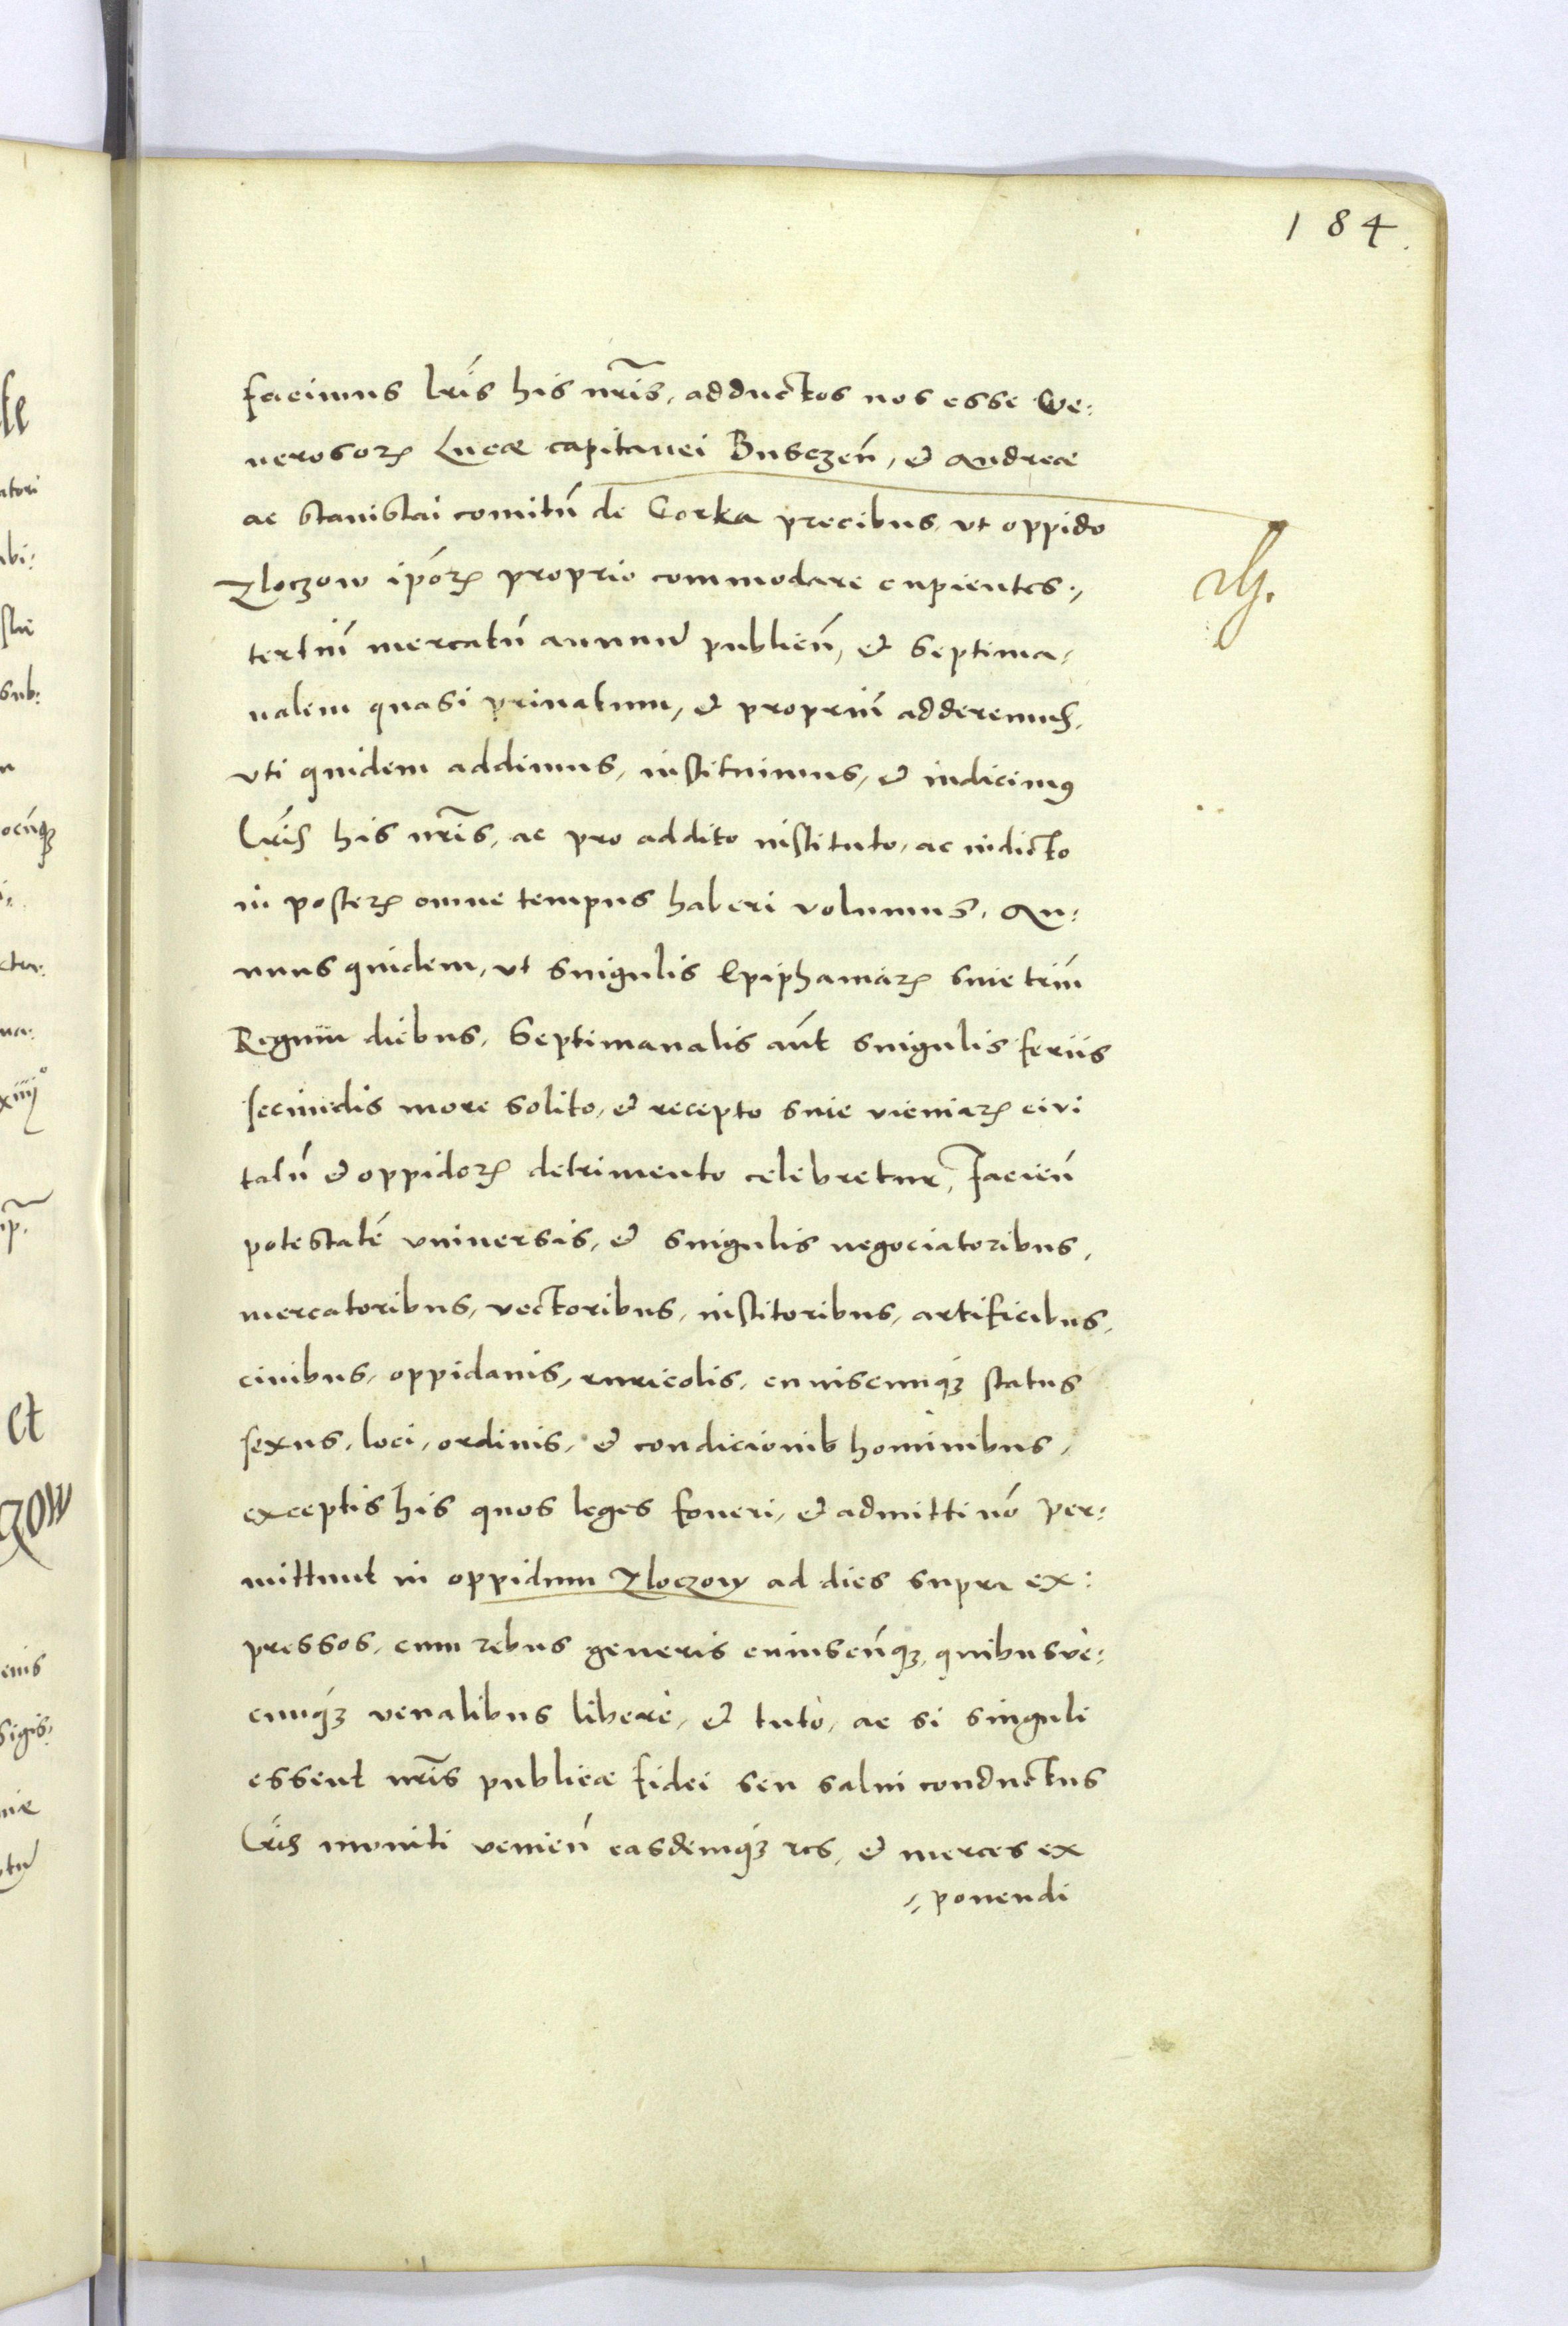 184.
facimus lr̃is his nr̃is, adductos nos esse Ge:
nerosorꝝ Lucæ capitanei Busczeñ, et Andreæ
ac Stanislai comitũ de Gorka precibus, vt oppido
Zloczow ip̃orꝝ proprio commodare cupientes,,
tertiũ mercatũ annuũ publicũ, et septima,
nalem quasi priuatum, et propriũ adderemus,
vti quidem addimus, instituimus, et indicimꝰ
lr̃is his nr̃is, ac pro addito instituto, ac indicto
in posterꝝ omne tempus haberi volumus, An:
nuus quidem, vt singulis Epiphaniarꝝ siue triũ
Regum diebus, Septimanalis aũt singulis feriis
secundis more solito, et recepto siue viciniarꝝ ciui
tatũ et oppidorꝝ detrimento celebretur, Facieñ
potestatẽ vniuersis, et singulis negociatoribus,
mercatoribus, vectoribus, institoribus, artificibus,
ciuibus, oppidanis, ruricolis, cuiuscunqꝫ status
sexus, loci, ordinis, et condicionis hominibus,
exceptis his quos leges foueri, et admitti nõ per:
mittunt in oppidum Zloczow ad dies supra ex:
pressos, cum rebus generis cuiuscũqꝫ, quibusve:
cunqꝫ venalibus liberè, et tutò, ac si singuli
essent nr̃is publicæ fidei seu salui conductus
lr̃is muniti venieñ easdemqꝫ res, et merces ex
,, ponendi